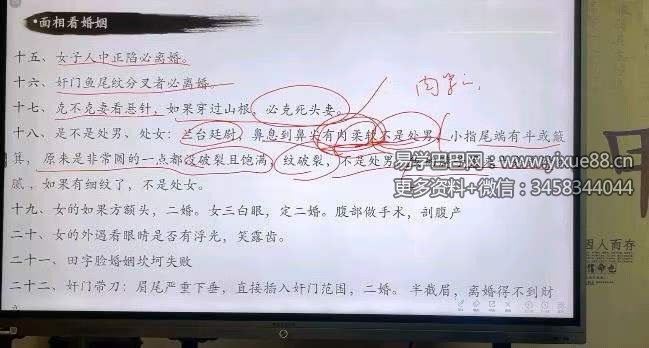 ·面相看婚姻
十五、女子人中正陷必离婚。
十六、奸门鱼尾纹分叉者必离婚。
十七、克不克妻看悬针，如果穿过山根，必克死头妻。
肉学
十八、是不是处男、处女：兰台廷尉，鼻息到鼻头有肉柔软不是处男，小指尾端有斗或簸
箕，原来是非常圆的一点都没破裂且饱满，纹破裂，不是处男
腻，如果有细纹了，不是处女。
十九、女的如果方额头，二婚。女三白眼，定二婚。腹部做手术，剖腹产
二十、女的外遇看眼睛是否有浮光，笑露齿。
二十一、田字脸婚姻坎坷失败
二十二、奸门带刀：眉尾严重下垂，直接插入奸门范围，二婚。半截眉，离婚得不到财
易学巴巴网 www.yixue88.cn
更多资料+微信：3458344044
因人而存
信命也